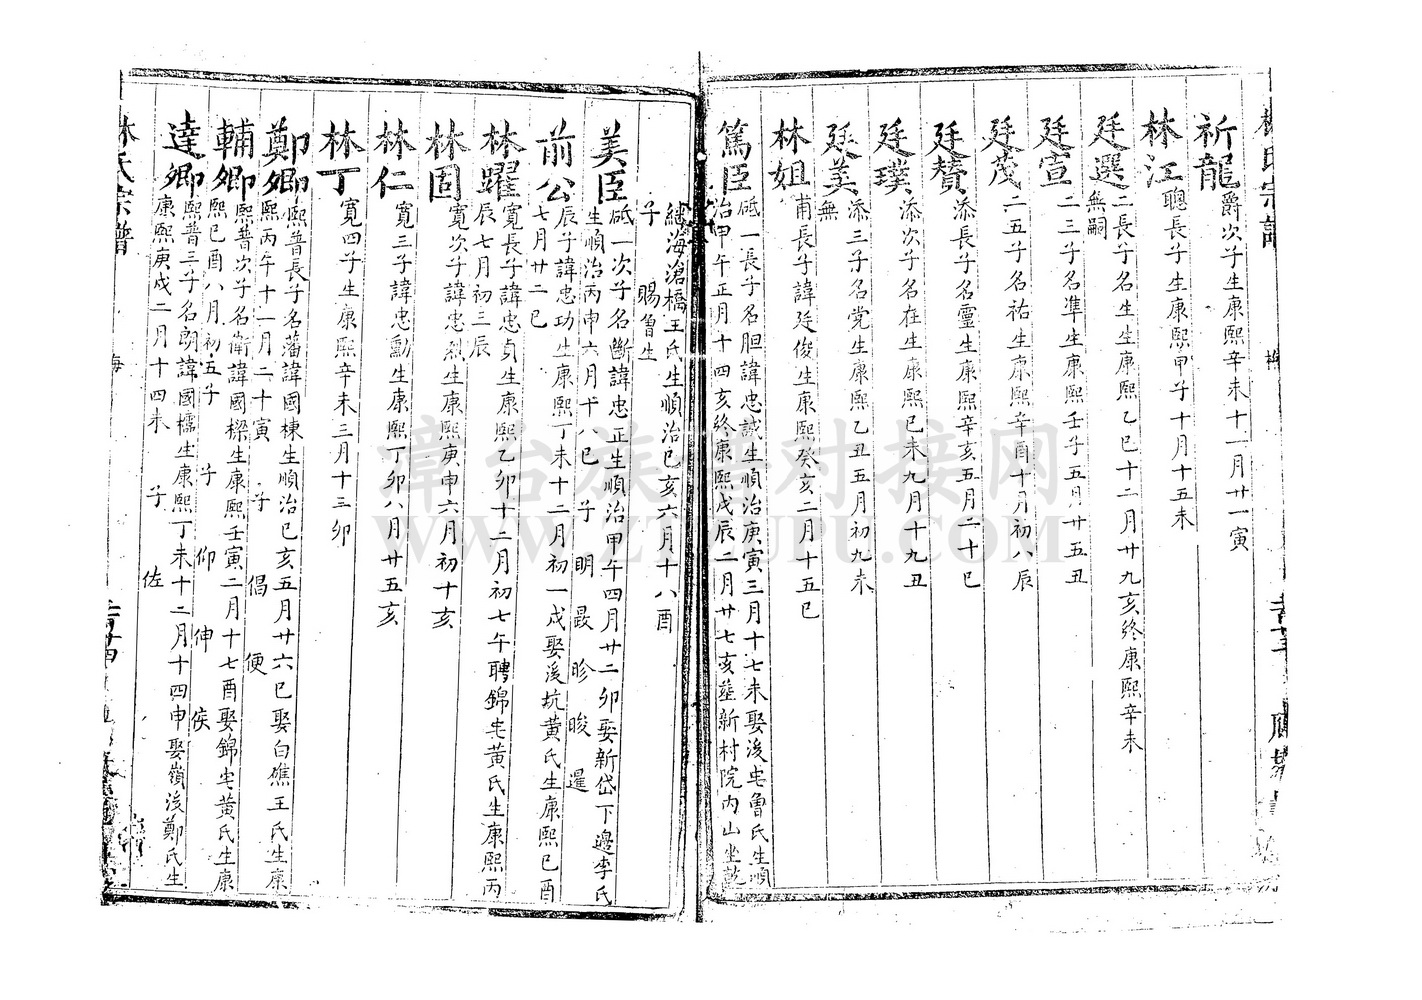 林氏宗譜
祈龍
爵次子生康熙辛未十一月廿一寅
林江
聰長子生康熙甲子十月十五未
廷選
二長子名生生康熙乙巳十二月廿九亥終康熙辛未
無嗣
廷宣
二三子名準生康熙壬子五月廿五丑
廷茂
二五子名祐生康熙辛酉十月初八辰
廷贊
添長子名靈生康熙辛亥五月二十巳
廷璞
添次子名在生康熙己未九月十九丑
廷美
添三子名党生康熙乙丑五月初九未
無
林姐
甫長子諱廷俊生康熙癸亥二月十五巳
篤臣
砥一長子名胆諱忠誠生順治庚寅三月十七未娶後宅魯氏生順
治甲午正月十四亥終康熙戊辰二月廿七亥葬新村院內山坐乾
總海滄橋王氏生順治己亥六月十八酉
子 賜 魯生
美臣
砥一次子名斷諱忠正生順治甲午四月廿二卯娶新岱下邊李氏
生順治丙申六月十八巳 子 明 最 畛 晙 暹
前公
辰子諱忠功生康熙丁未十二月初一戌娶後坑黃氏生康熙己酉
七月廿二巳
林躍
寬長子諱忠貞生康熙乙卯十二月初七午聘錦宅黃氏生康熙丙
辰七月初三辰
林固
寬次子諱忠烈生康熙庚申六月初十亥
林仁
寬三子諱忠勳生康熙丁卯八月廿五亥
林丁
寬四子生康熙辛未三月十三卯
鄭卿
熙普長子名藩諱國棟生順治己亥五月廿六巳娶白礁王氏生康
熙丙午十一月二十寅 子 倡 便
輔卿
熙普次子名衛諱國樑生康熙壬寅二月十七酉娶錦宅黃氏生康
熙己酉八月初五子 子 仰 伸 侯
達卿
熙普三子名朗諱國檽生康熙丁未十二月十四申娶嶺後鄭氏生
康熙庚戌二月十四未 子 佐
林氏宗譜
章台族譜对接网
WWW.ZTZUPU.COM